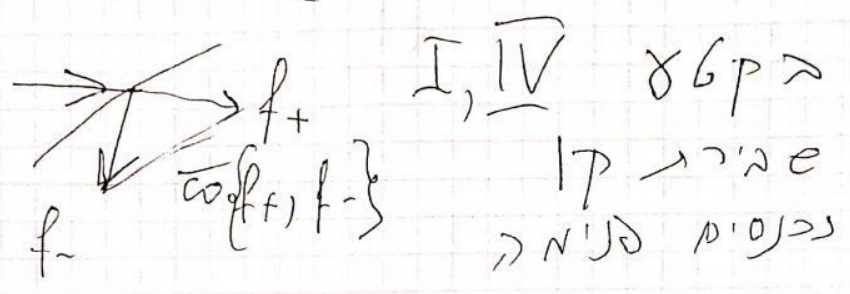 בקטע I, IV
שבירת קו
נכנסים פנימה
f₊
c̅o̅{f₊, f₋}
f₋